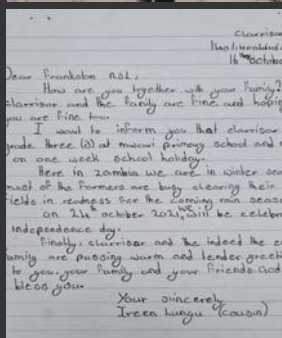 Clarrisar
16th October
Dear Frankston RSL,
How are you together with your family?
Clarrisar and the family are fine and hoping
you are fine too.
I want to inform you that clarrisar
grade three (3) at muwari primary school and
on one week school holiday.
Here in zambia we are in winter sea
most of the farmers are busy clearing their
ields in readness for the coming rain seaso
on 24th october 2021, we will be celebr
independence day.
Finally, clarrisar and the indeed the e
amily are passing warm and tender greeti
to you, your family and your friends. God
bless you.
Your siincerely
Ireen Lungu (cousin)